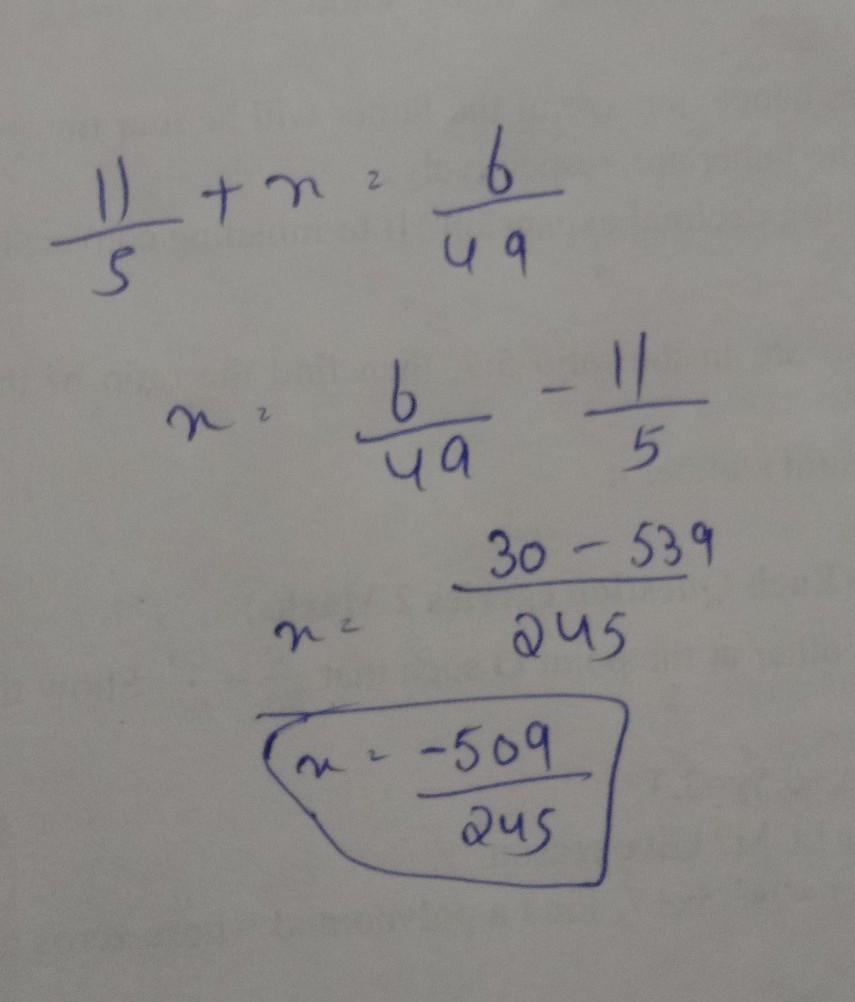 11/5 + x = 6/49
x = 6/49 - 11/5
x = (30 - 539)/245
x = -509/245